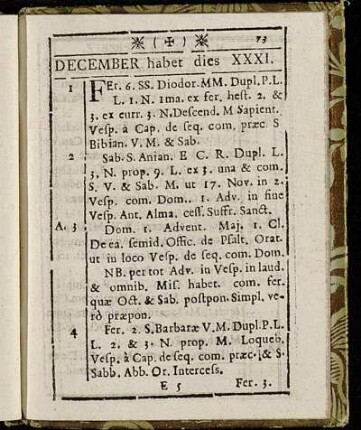 ( ✠ ) 73
DECEMBER habet dies XXXI.
1 FEr. 6. SS. Diodor. MM. Dupl. P. L.
L. 1. N. 1ma. ex fer. hest. 2. &
3. ex curr. 3. N. Descend. M Sapient.
Vesp. à Cap. de seq. com. præc. S
Bibian. V. M. & Sab.
2 Sab. S. Anian. E C. R. Dupl. L.
3. N. prop. 9. L. ex 3. una & com.
S. V. & Sab. M. ut 17. Nov. in 2.
Vesp. com. Dom.. 1. Adv. in fine
Vesp. Ant. Alma. cess. Suffr. Sanct.
A. 3 Dom. 1. Advent. Maj. 1. Cl.
De ea. semid. Offic. de Psalt. Orat.
ut in loco Vesp. de seq. com. Dom.
NB. per tot Adv. in Vesp. in laud.
& omnib. Mis. habet. com. fer.
quæ Oct. & Sab. postpon. Simpl. ve-
rò præpon.
4 Fer. 2. S. Barbaræ V. M. Dupl. P. L.
L. 2. & 3. N. prop. M. Loqueb.
Vesp. à Cap. de seq. com. præc. & S.
Sabb. Abb. Or. Intercess.
E 5 Fer. 3.